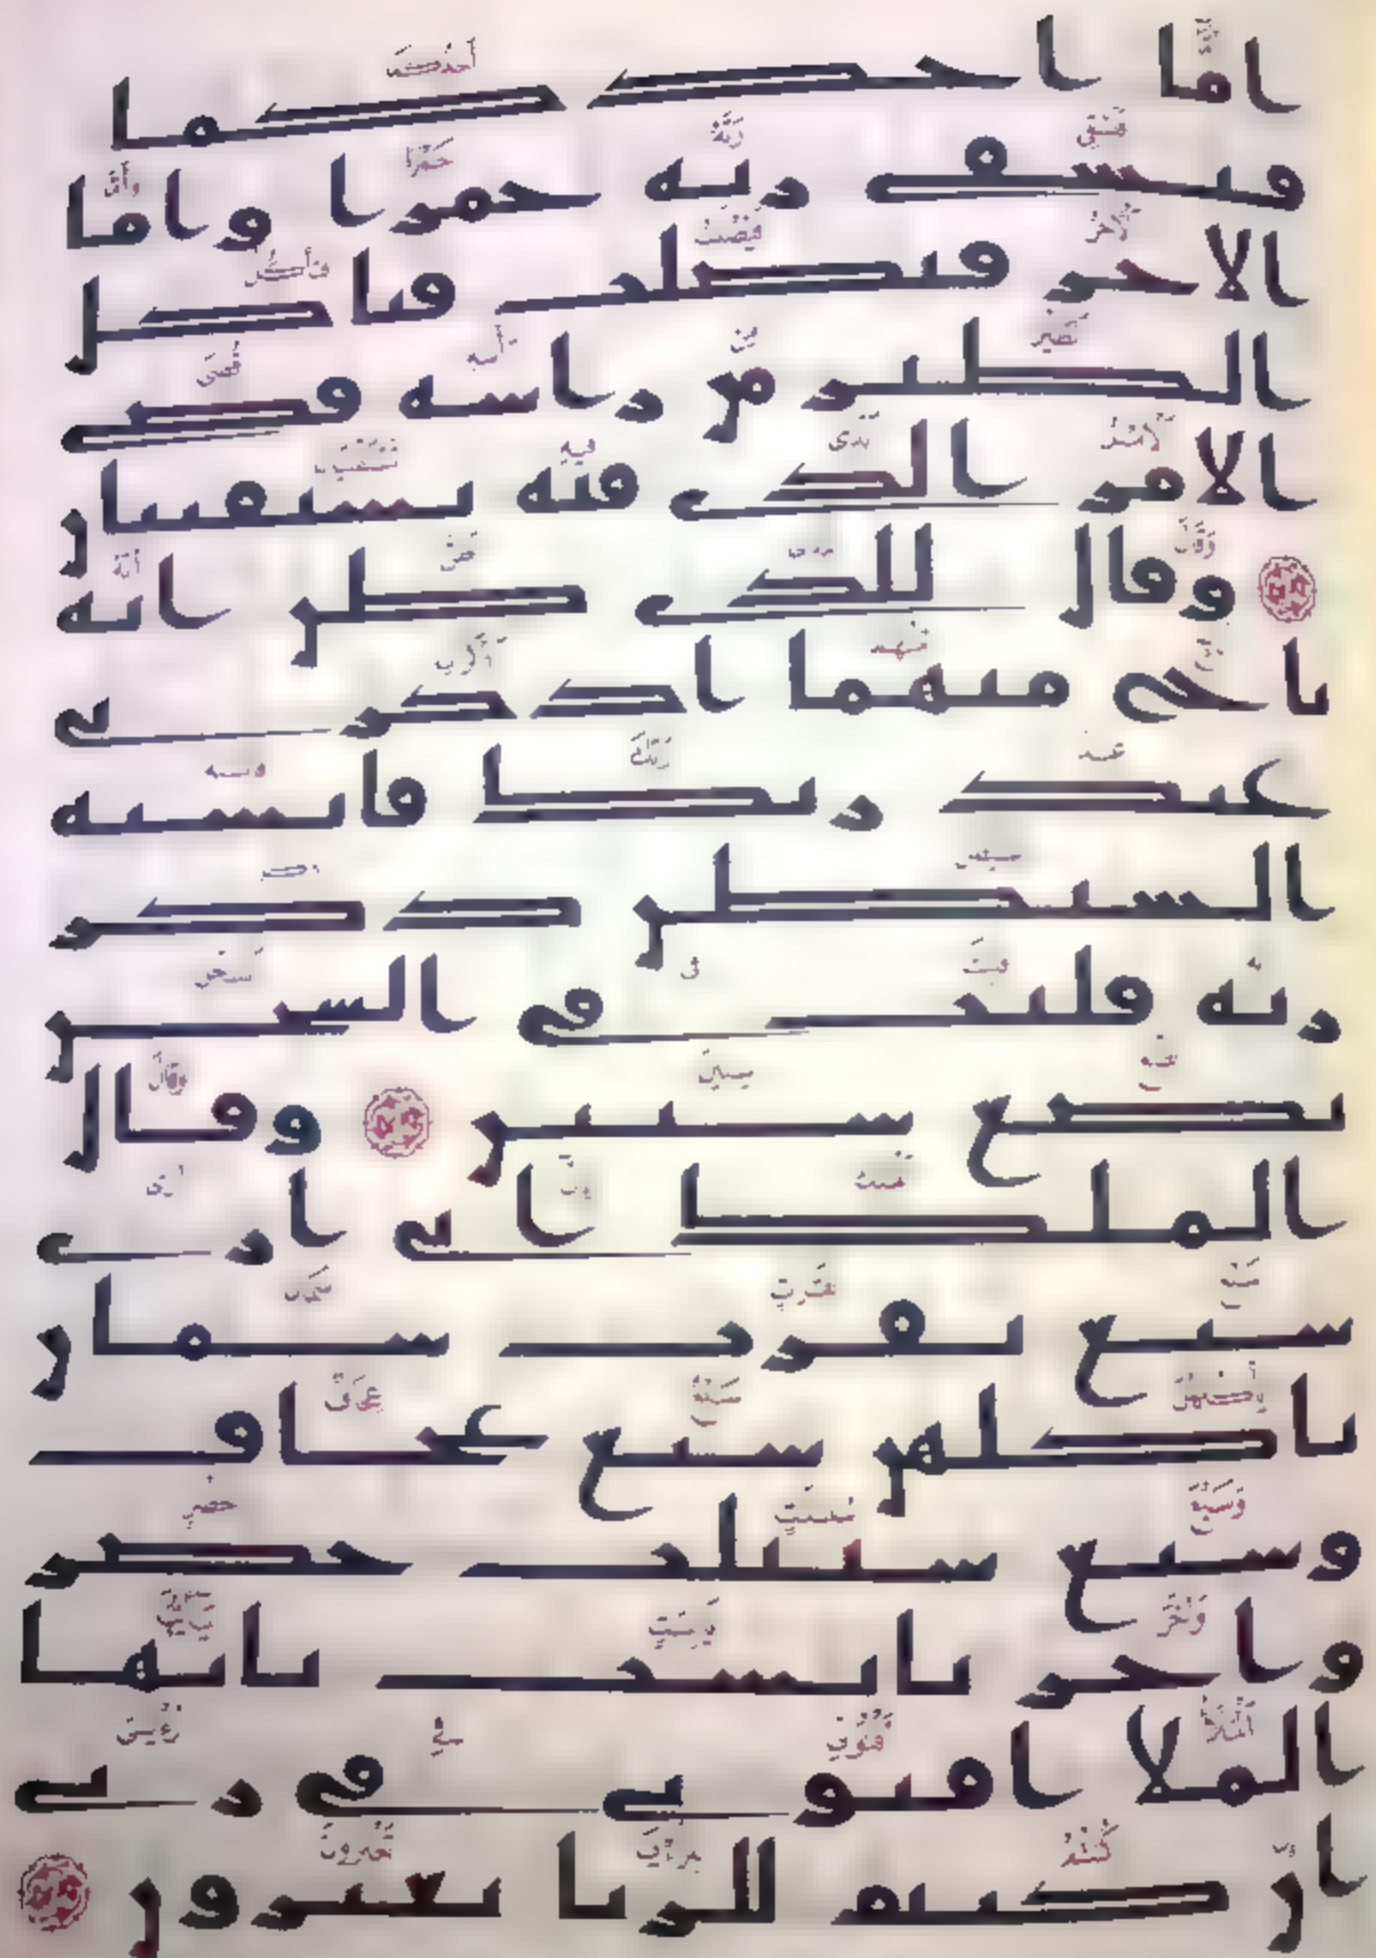 اما احدكما
فيسقي ربه خمرا واما
الاخر فيصلب فتاكل
الطير من راسه قضي
الامر الذي فيه تستفتيان
وقال للذي ظن انه
ناج منهما اذكرني
عند ربك فانسيه
الشيطن ذكر
ربه فلبث في السجن
بضع سنين وقال
الملك اني اري
سبع بقرت سمان
ياكلهن سبع عجاف
وسبع سنبلت خضر
واخر يابست يايها
الملا افتوني في ريي
ان كنتم للريا تعبرون